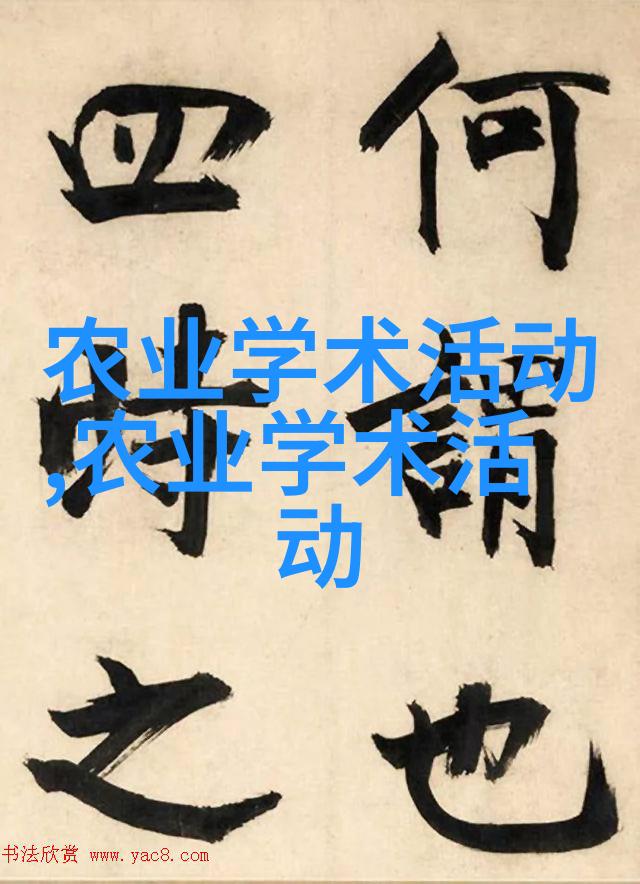 何謂也
四時之
农业学术活动
,农业学术活
动
书法欣赏 www.yac8.com